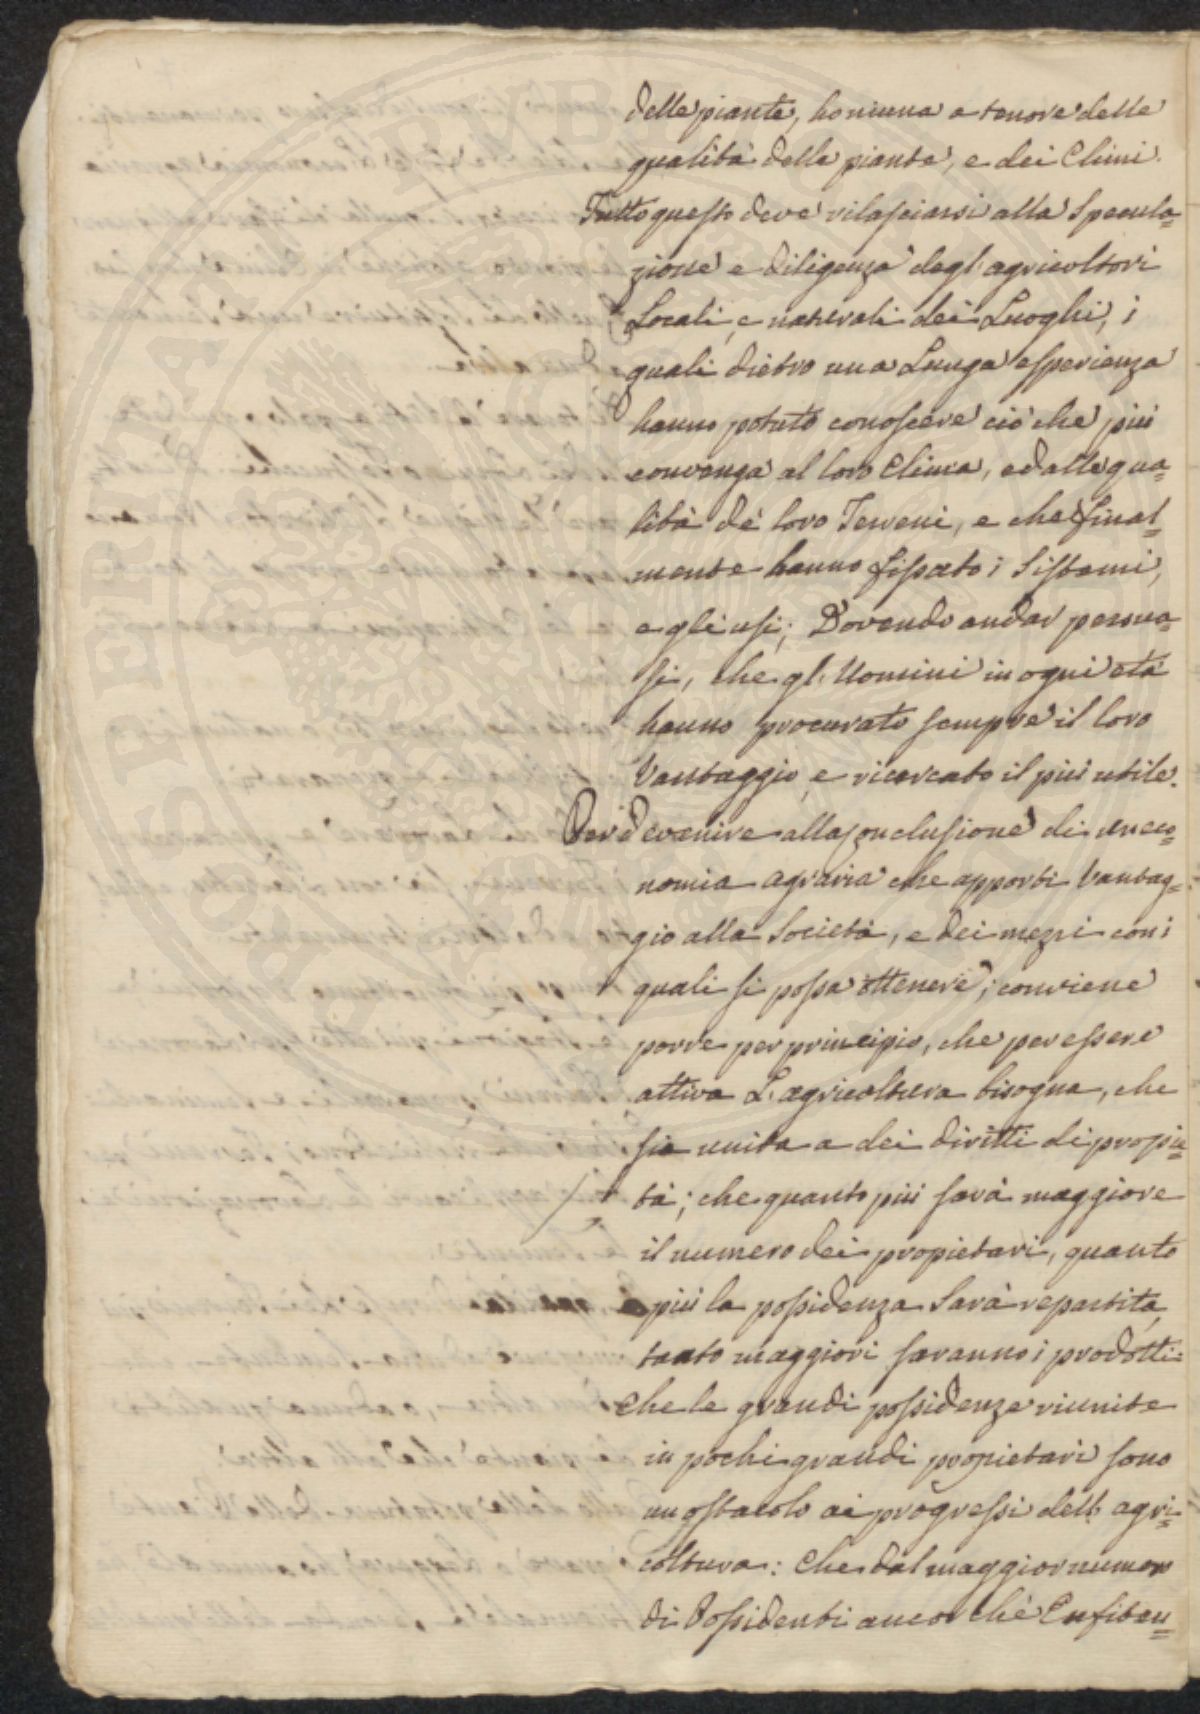 delle piante, ho niuna a tenore delle
qualità delle piante, e dei Climi.
Tutto questo deve rilasciarsi alla Specula=
zione e diligenza degl'agricoltori
Locali, e naturali dei Luoghi, i
quali dietro una Lunga esperienza
hanno potuto conoscere ciò che più
convenga al loro Clima, ed alle qua=
lità de loro Terreni, e che final=
mente hanno fissato i Sistemi,
e gli usi; Dovendo andar persua=
si, che gl'Uomini in ogni età
hanno procurato sempre il loro
Vantaggio, e ricercato il più utile.
Per devenire alla conclusione di uneco=
nomia agraria che apporti Vantag=
gio alla Società, e dei mezzi con i
quali si possa ottenere; conviene
porre per principio, che per essere
attiva L'agricoltura bisogna, che
sia unita a dei diritti di propie=
tà; che quanto più sarà maggiore
il numero dei propietari, quanto
più la possidenza Sarà repartita,
tanto maggiori saranno i prodotti:
Che le grandi possidenze riunite
in pochi grandi propietari sono
un ostacolo ai progressi dell'agri=
coltura: Che dal maggior numero
di Possidenti ancor chè Enfiteu=
PUBLICUM PROSPERITATI